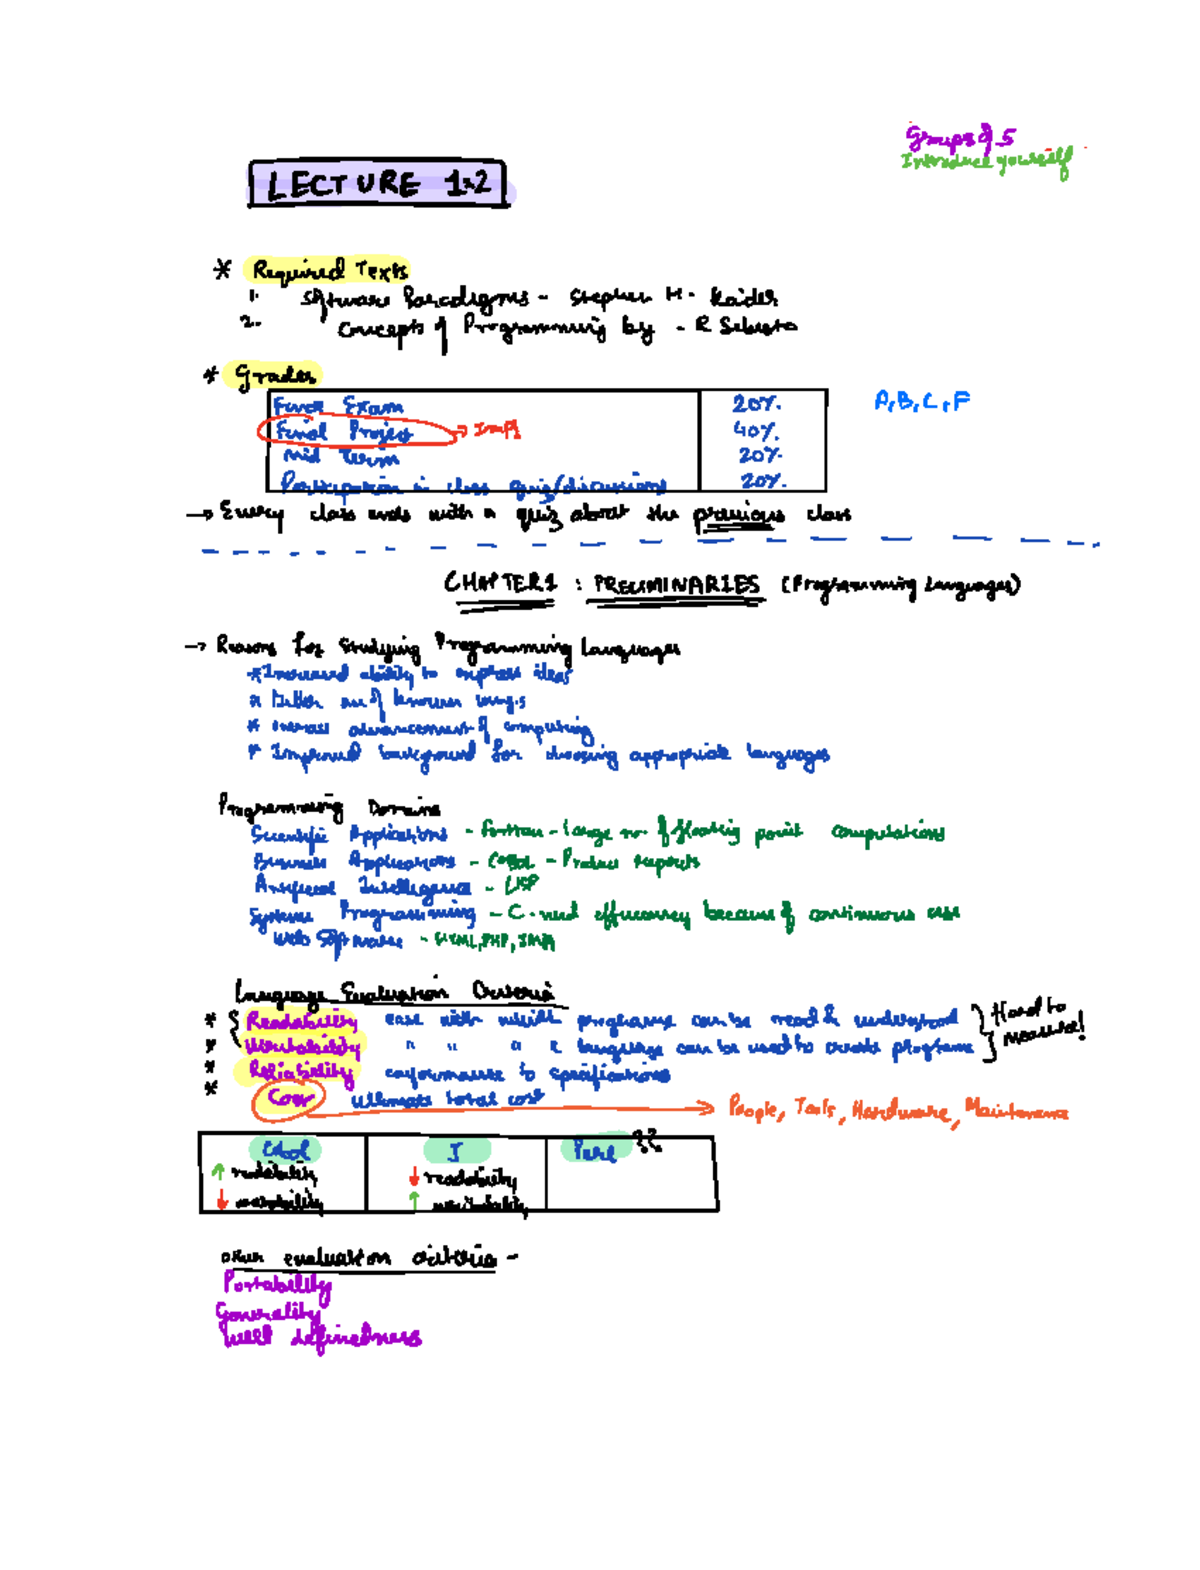 Groups of 5
Introduce yourself
LECTURE 1.2
* Required Texts
1. Software Paradigms - Stephen H. Kaisler
2. Concepts of Programming by - R Sebesta
* Grades
Final Exam 20%
Final Project → Imp! 40%
Mid Term 20%
Participation in class quiz/discussions 20%
A, B, C, F
→ Every class ends with a quiz about the previous class
CHAPTER 1 : PRELIMINARIES (Programming Languages)
→ Reasons for Studying Programming Languages
* Increased ability to express ideas
* Better use of known langs
* Overall advancement of computing
* Improved background for choosing appropriate languages
Programming Domains
Scientific Applications - Fortran - large no. of floating point computations
Business Applications - COBOL - Produce reports
Artificial Intelligence - LISP
Systems Programming - C - need efficiency because of continuous use
Web Software - HTML, PHP, JAVA
Language Evaluation Criteria
* Readability ease with which programs can be read & understood
* Writability " " " " language can be used to create programs
Hard to measure!
* Reliability conformance to specifications
* Cost ultimate total cost → People, Tools, Hardware, Maintenance
Cobol J Perl ??
↑ readability ↓ readability
↓ writability ↑ writability
other evaluation criteria -
Portability
Generality
Well definedness